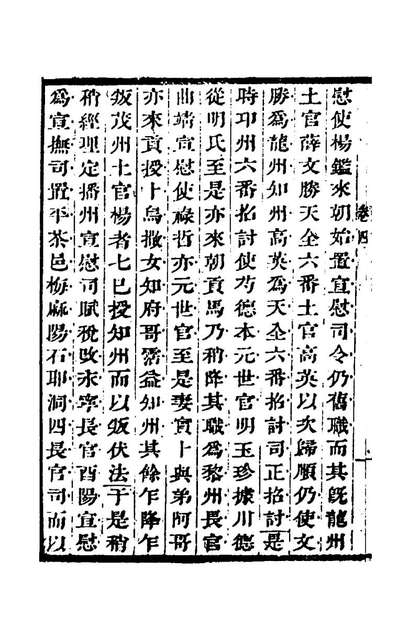 慰使楊鑑來朝始置宣慰司令仍舊職而其旣龍州
土官薛文勝天全六番土官高英以次歸順仍使文
勝為龍州知州高英為天全六番招討司正招討是
時卭州六番招討使芍德本元世官明玉珍據川德
從明氏至是亦來朝貢馬乃稍降其職為黎州長官
曲靖宣慰使祿哲亦元世官至是妻實卜與弟阿哥
亦來貢授卜烏撒女知府哥霑益知州其餘乍降乍
叛茂州土官楊者七已授知州而以叛伏法于是稍
稍經理定播州宣慰司賦稅改永寧長官酉陽宣慰
為宣撫司置平茶邑梅麻陽石耶洞四長官司而以
卷四